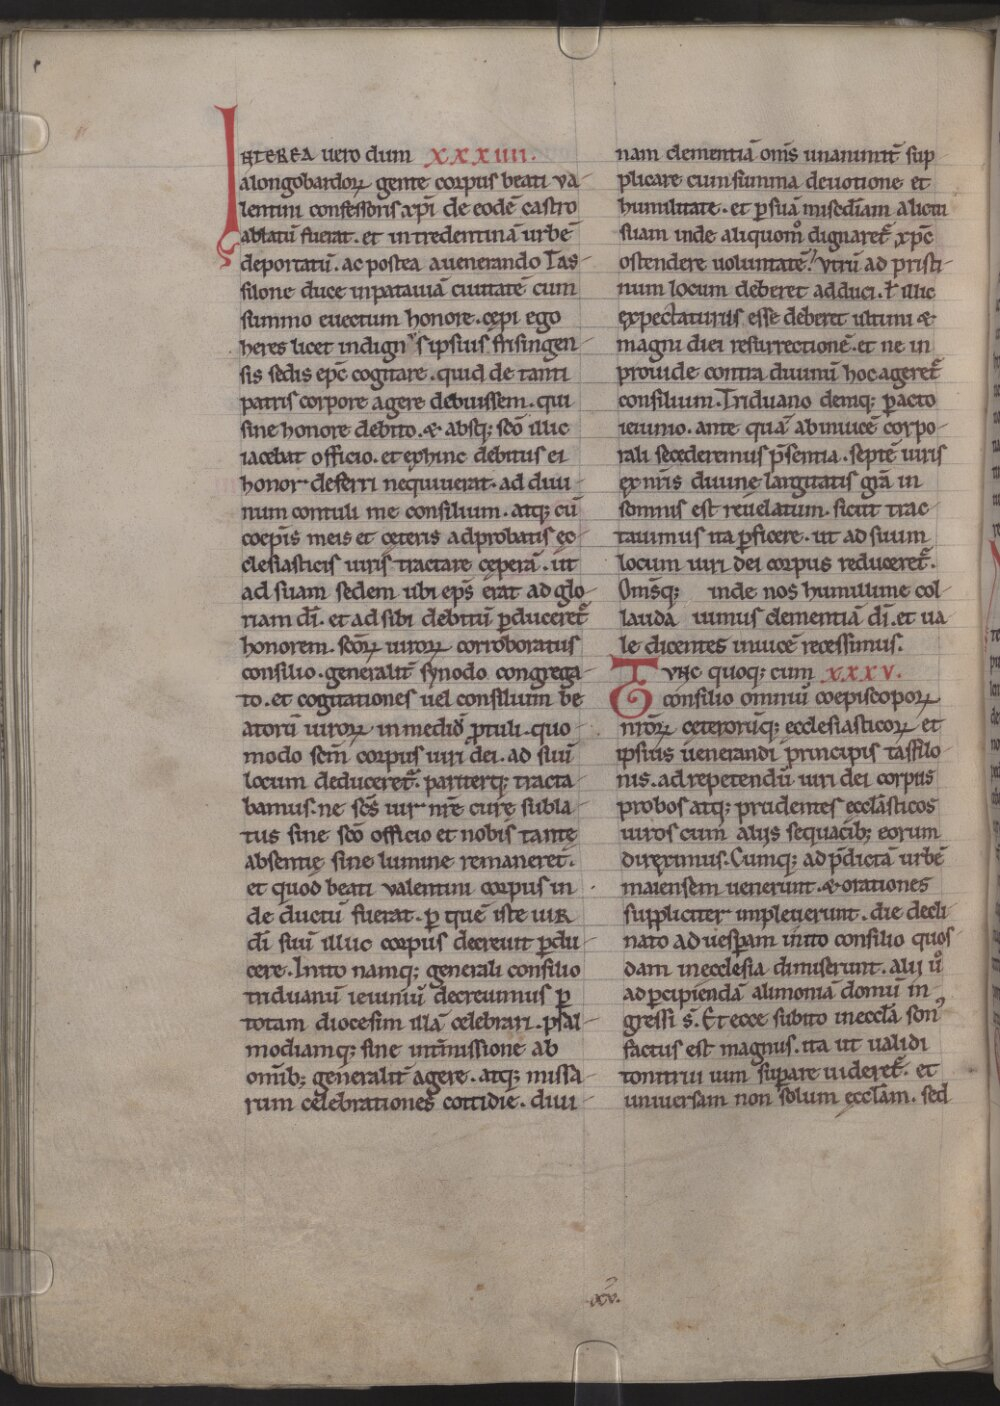 INTEREA uero dum XXXIIII.
alongobardoꝝ gente corpus beati va
lentini confessoris xp̄i de eodē castro
ablatū fuerat. et in tredentinā urbē
deportatū. ac postea auenerando Tas-
silone duce inpatauiā ciuitatē cum
summo euectum honore. cępi ego
heres licet indignꝰ ipsius frisingen-
sis sedis ep̄c cogitare. quid de tanti
patris corpore agere debuissem. qui
sine honore debito. & absq; sc̄o illic
iacebat officio. et ephinc debitus ei
honor deferri nequiuerat. ad diui-
num contuli me consilium. atq; cū
coep̄is meis et cęteris adprobatis ęc-
clesiasticis uiris tractare cęperā. ut
ad suam sedem ubi ep̄s erat ad glo-
riam dī. et ad sibi debitū ꝑduceret᷑
honorem. sc̄oꝝ uiroꝝ corroboratus
consilio. generalit̄ synodo congrega-
to. et cogitationes uel consilium be-
atorū uiroꝝ in mediō ꝓtuli. quo-
modo sc̄m corpus uiri dei. ad suū
locum deduceret᷑. pariterq; tracta-
bamus. ne sc̄s uir nr̄ę curę subla-
tus sine sc̄o officio et nobis tantę
absentię sine lumine remaneret.
et quod beati valentini corpus in-
de ductū fuerat. ꝑ quē iste uir
dī suū illuc corpus decreuit ꝑdu-
cere. Inito namq; generali consilio
triduanū ieiuniū decreuimus ꝑ
totam diocesim illā celebrari. psal-
modiamq; sine int̄missione ab
omīb; generalit̄ agere. atq; missa-
rum celebrationes cottidie. diui
nam clementiā om̄s unanimit̄ sup-
plicare cum summa deuotione et
humilitate. et ꝑ suā mis̄ediam alicui
suam inde aliquom̊ dignaret᷑ xp̄c
ostendere uoluntatē. vtrū ad pristi-
num locum deberet adduci. ł illic
expectaturus esse deberet ultimi &
magni diei resurrectionē. et ne in-
prouide contra diuinū hoc ageret᷑
consilium. Triduano deniq; ꝑacto
ieiunio. ante quā abinuicē corpo-
rali secederemus p̄sentia. septē uiris
ex nr̄is diuinę largitatis grā in
somnis est reuelatum. sicut trac-
tauimus ita ꝑficere. ut ad suum
locum uiri dei corpus reduceret᷑.
Om̄sq; inde nos humillime col-
lauda uimus clementiā dī. et ua-
le dicentes inuicē recessimus.
TVNC quoq; cum XXXV.
consilio omniū coepiscopoꝝ
nr̄oꝝ ceterorūq; ecclesiasticoꝝ et
ipsius uenerandi principis tassilo-
nis. ad repetendū uiri dei corpus
probos atq; prudentes eccl̄asticos
uiros cum alijs sequacib; eorum
direximus. Cumq; ad p̄dictā urbē
maiensem uenerunt. & orationes
suppliciter impleuerunt. die decli-
nato ad uesꝑam inito consilio quos-
dam inecclesia dimiserunt. alij ů
ad ꝑcipiendā alimoniā domū in-
gressi s̄. Et ecce subito ineccl̄a sonꝰ
factus est magnus. ita ut ualidi
tonitrui uim suꝑare uideret᷑. et
uniuersam non solum ęccl̄am. sed
xv.